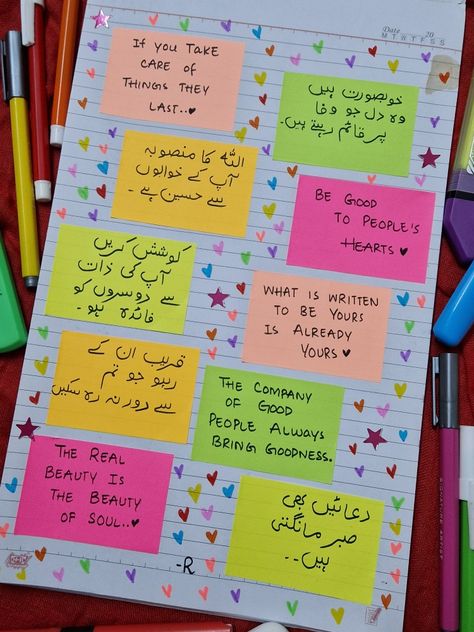 Date 20
M T W T F S S
IF YOU TAKE
CARE OF
THINGS THEY
LAST..
خوبصورت ہیں
وہ دل جو وفا
پر قائم رہتے ہیں۔
اللہ کا منصوبہ
آپ کے خوابوں
سے حسین ہے۔
BE GOOD
TO PEOPLE'S
HEARTS
کوشش کریں
آپ کی ذات
سے دوسروں کو
فائدہ ہو۔
WHAT IS WRITTEN
TO BE YOURS
IS ALREADY
YOURS
قریب ان کے
رہو جو تم
سے دور نہ رہ سکیں
THE COMPANY
OF GOOD
PEOPLE ALWAYS
BRING GOODNESS.
THE REAL
BEAUTY IS
THE BEAUTY
OF SOUL..
دعائیں بھی
صبر مانگتی
ہیں۔۔
-R